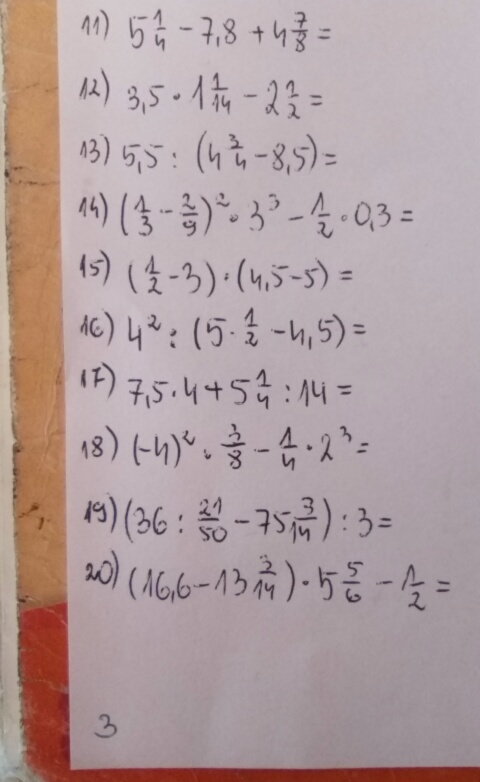 11) 5 1/4 - 7,8 + 4 7/8 =
12) 3,5 · 1 1/14 - 2 1/2 =
13) 5,5 : (4 3/4 - 8,5) =
14) (1/3 - 2/9)² · 3³ - 1/2 · 0,3 =
15) (1/2 - 3) · (4,5 - 5) =
16) 4² : (5 · 1/2 - 4,5) =
17) 7,5 · 4 + 5 1/4 : 14 =
18) (-4)² · 3/8 - 1/4 · 2³ =
19) (36 : 21/50 - 75 3/14) : 3 =
20) (16,6 - 13 3/14) · 5 5/6 - 1/2 =
3